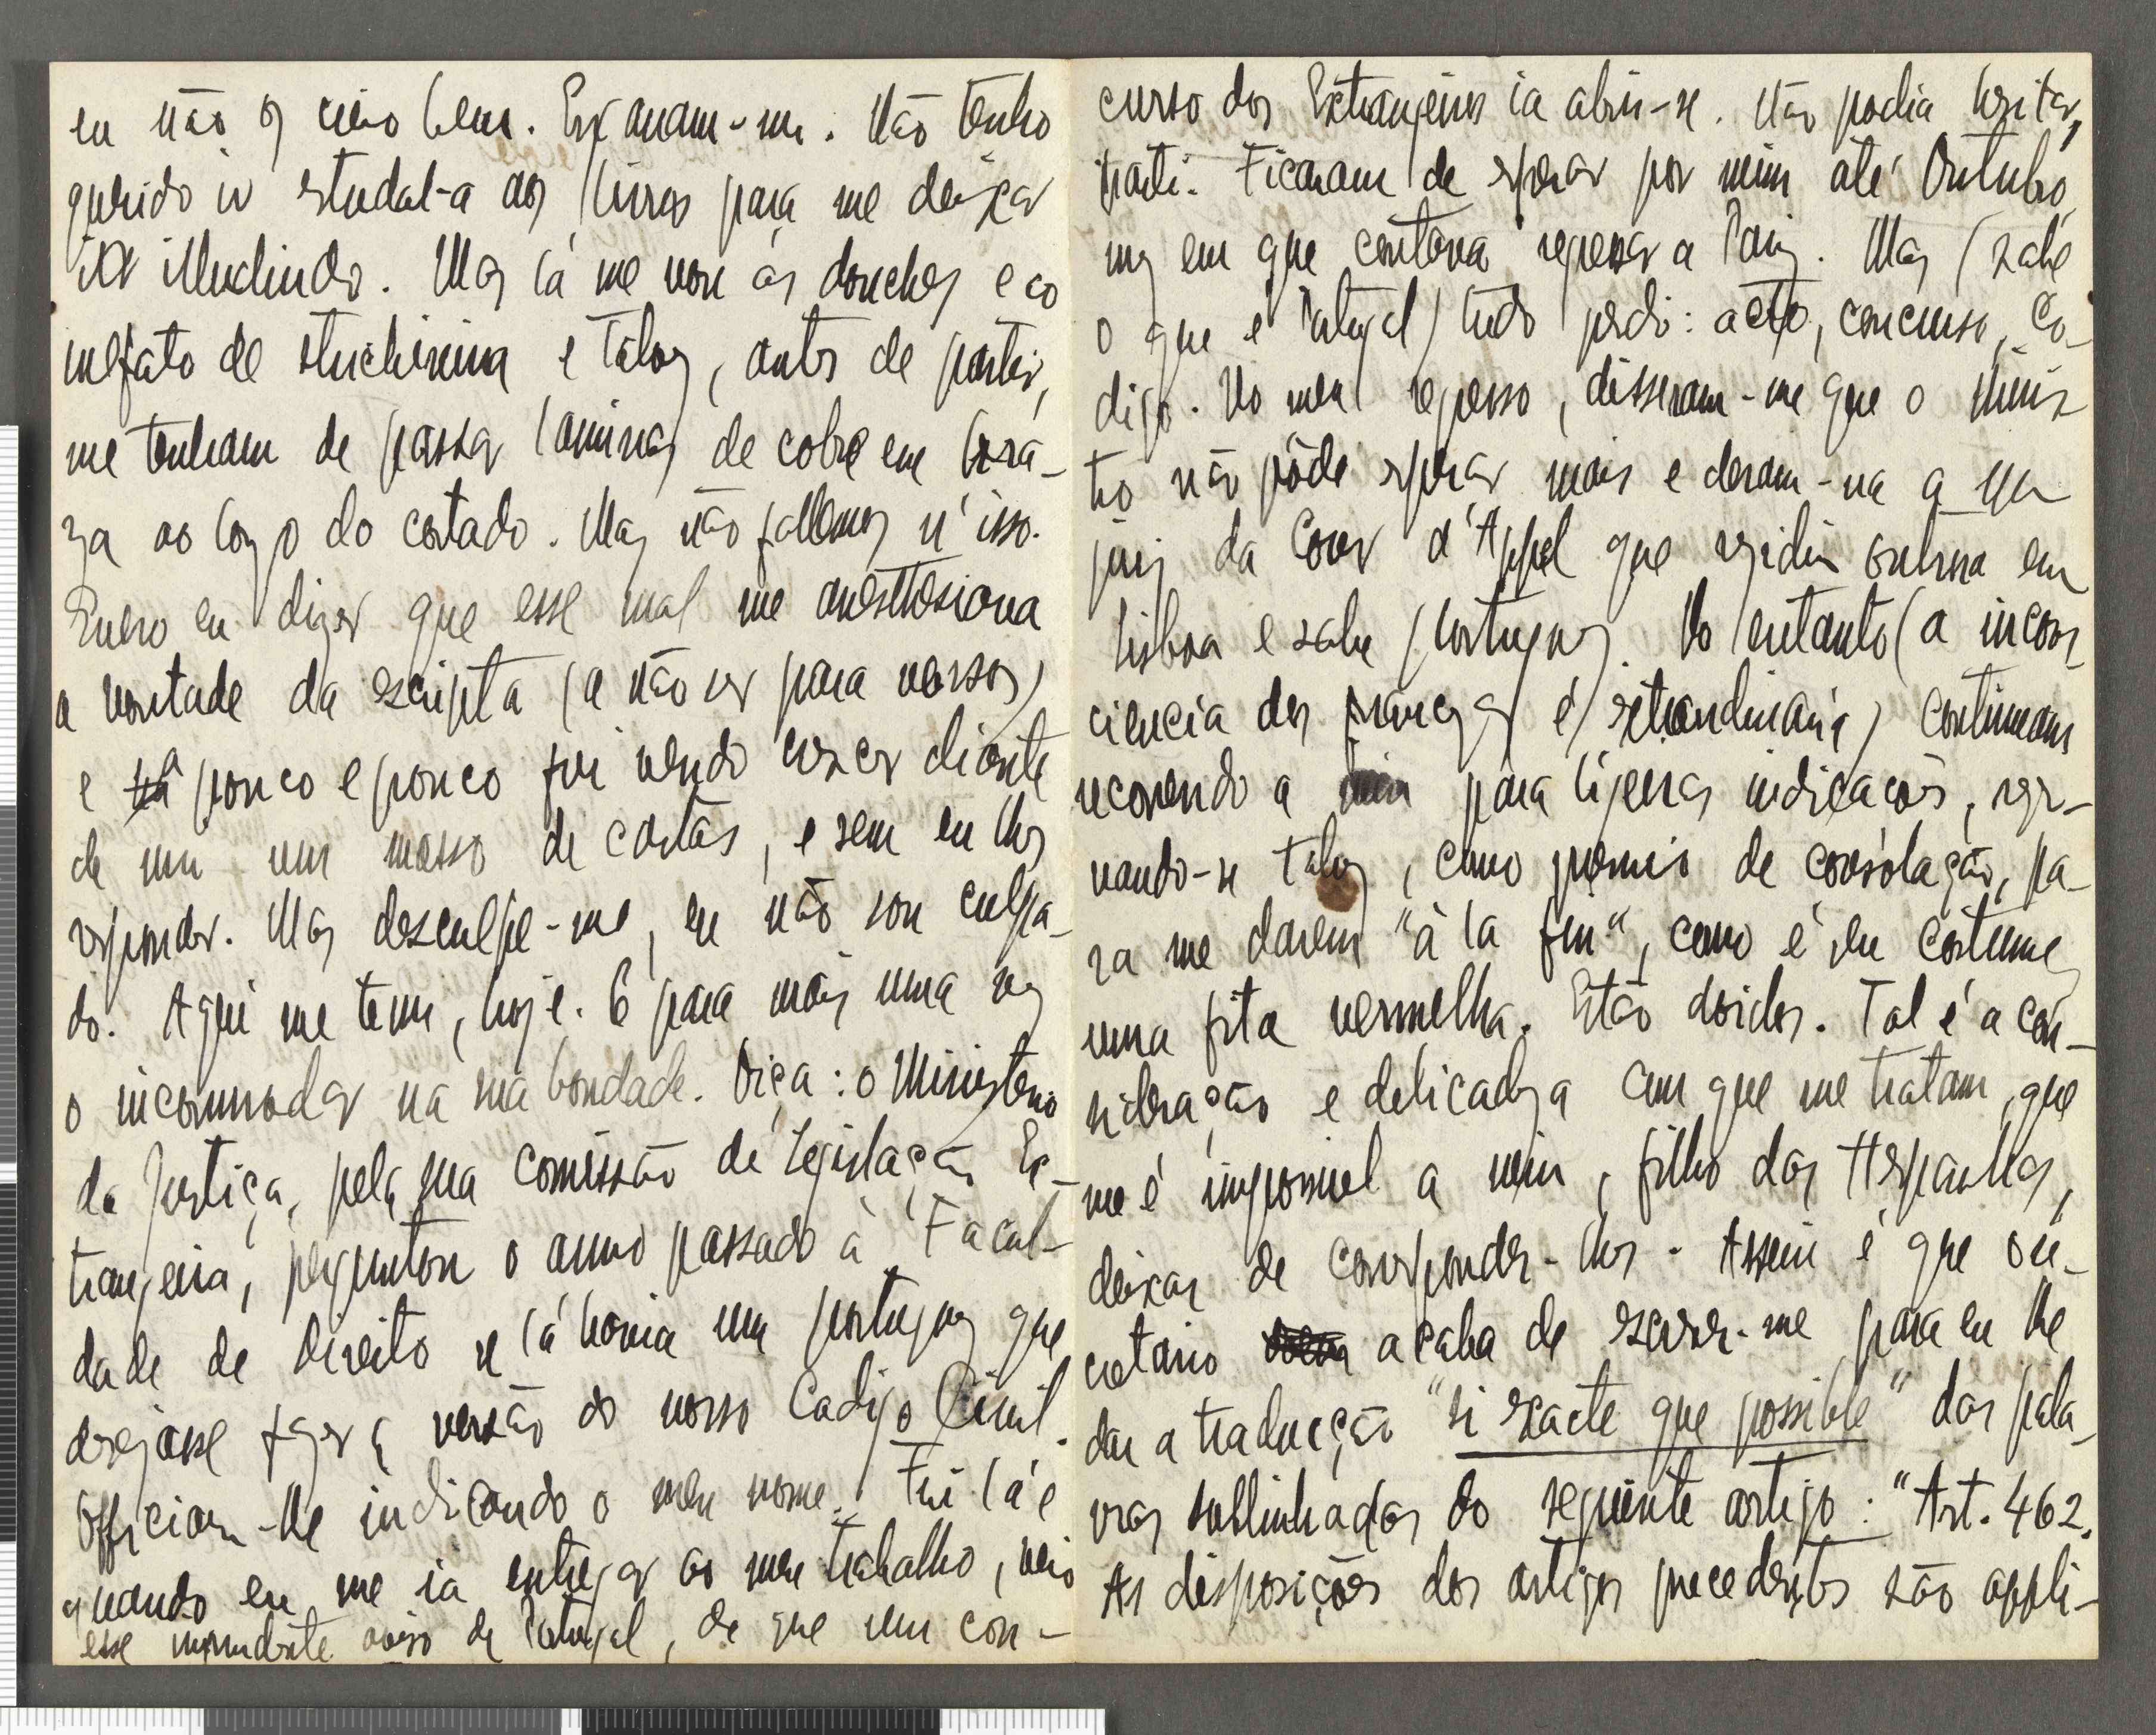 eu não os creio bem. Enganam-me. Não tenho
querido ir estudal-a aos livros para me deixar
ir illudindo. Mas lá me vou ás douches e ao
sulfato de strichinina e talvez, antes de partir,
me tenham de passar laminas de cobre em bra-
za ao longo do costado. Mas não fallemos n'isso.
Quero eu dizer que esse mal me anesthesiava
a vontade da escripta (a não ser para versos)
e a pouco e pouco fui vendo crescer diante
de mim um masso de cartas, e sem eu lhes
responder. Mas desculpe-me, eu não sou culpa-
do. Aqui me tem, hoje. É para mais uma vez
o incommodar na sua bondade. Oiça: o Ministerio
da Justiça, pela sua comissão de Legislação Ex-
trangeira, perguntou o anno passado á Facul-
dade de Direito se lá havia um portuguez que
desejasse fazer a versão do nosso Codigo Civil.
Officiou-lhe indicando o meu nome. Fui lá e
quando eu me ia entregar ao meu trabalho, veio
esse imprudente aviso de Portugal, de que um con-
curso dos Extrangeiros ia abrir-se. Não podia hesitar,
parti. Ficaram de esperar por mim até Outubro,
mez em que contava regressar a Pariz. Mas (sabe
o que é Portugal) tudo perdi: acto, concurso, Co-
digo. No meu regresso, disseram-me que o Minis-
tro não pôde esperar mais e deram-na a um
juiz da Cour d'Appel que residiu outrora em
Lisboa e sabe portuguez. No entanto (a incons-
ciencia dos francezes é extraordinaria) continuam
recorrendo a mim para ligeiras indicações, reser-
vando-se talvez, como premio de consolação, pa-
ra me darem "à la fin", como é seu costume,
uma fita vermelha. Estão doidos. Tal é a con-
sideração e delicadeza com que me tratam, que
me é impossivel a mim, filho das Hespanhas,
deixar de corresponder-lhes. Assim é que o se-
cretario acaba de escrever-me para eu lhe
dar a traducção "si exacte que possible" das pala-
vras sublinhadas do seguinte artigo: "Art. 462.
As disposições dos artigos precedentes são appli-